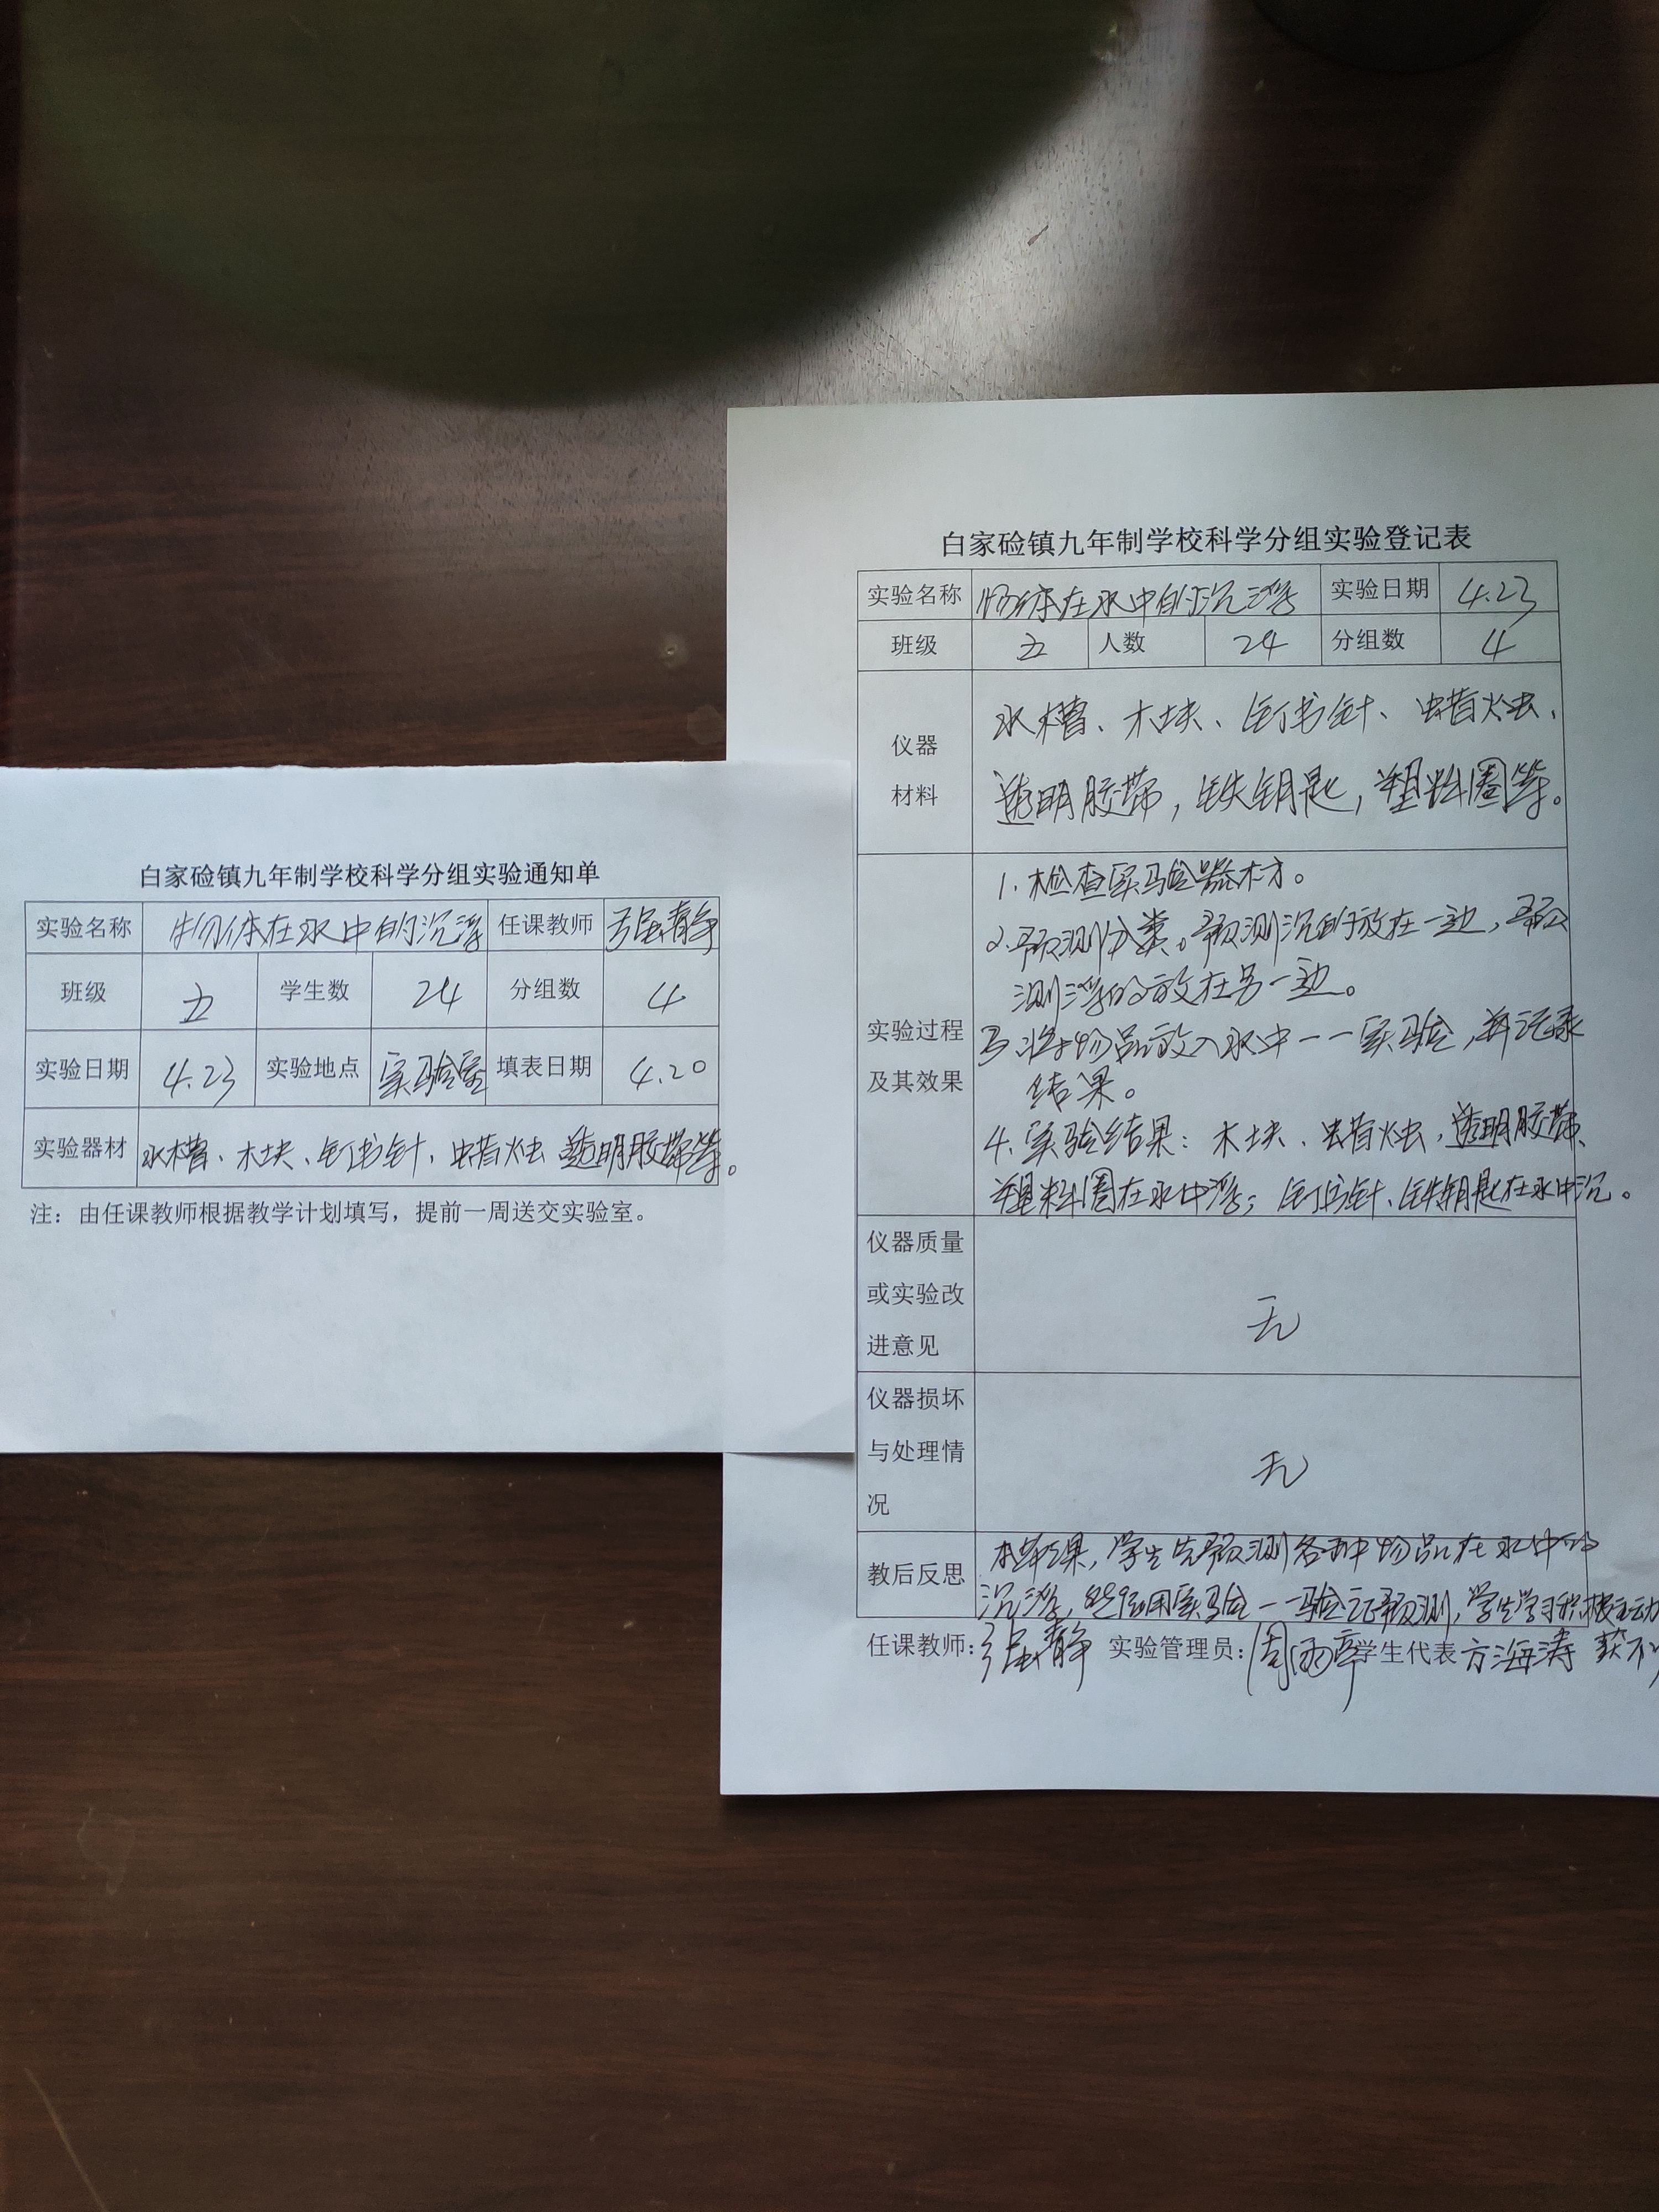 白家硷镇九年制学校科学分组实验通知单
实验名称 物体在水中的沉浮 任课教师 强静
班级 五 学生数 24 分组数 4
实验日期 4.23 实验地点 实验室 填表日期 4.20
实验器材 水槽、木块、钉书针、蜡烛 透明胶带等。
注：由任课教师根据教学计划填写，提前一周送交实验室。
白家硷镇九年制学校科学分组实验登记表
实验名称 物体在水中的沉浮 实验日期 4.23
班级 五 人数 24 分组数 4
仪器
材料
水槽、木块、钉书针、蜡烛、
透明胶带，铁钥匙，塑料圈等。
实验过程
及其效果
1.检查实验器材。
2.预测分类。预测沉的放在一边，预
测浮的放在另一边。
3.将物品放入水中一一实验，并记录
结果。
4.实验结果：木块、蜡烛，透明胶带、
塑料圈在水中浮；钉书针、铁钥匙在水中沉。
仪器质量
或实验改
进意见
无
仪器损坏
与处理情
况
无
教后反思
本节课，学生先预测各种物品在水中的
沉浮，然后用实验一一验证预测，学生学习积极主动
任课教师：强静 实验管理员：周雨章 学生代表 方海涛 获不少